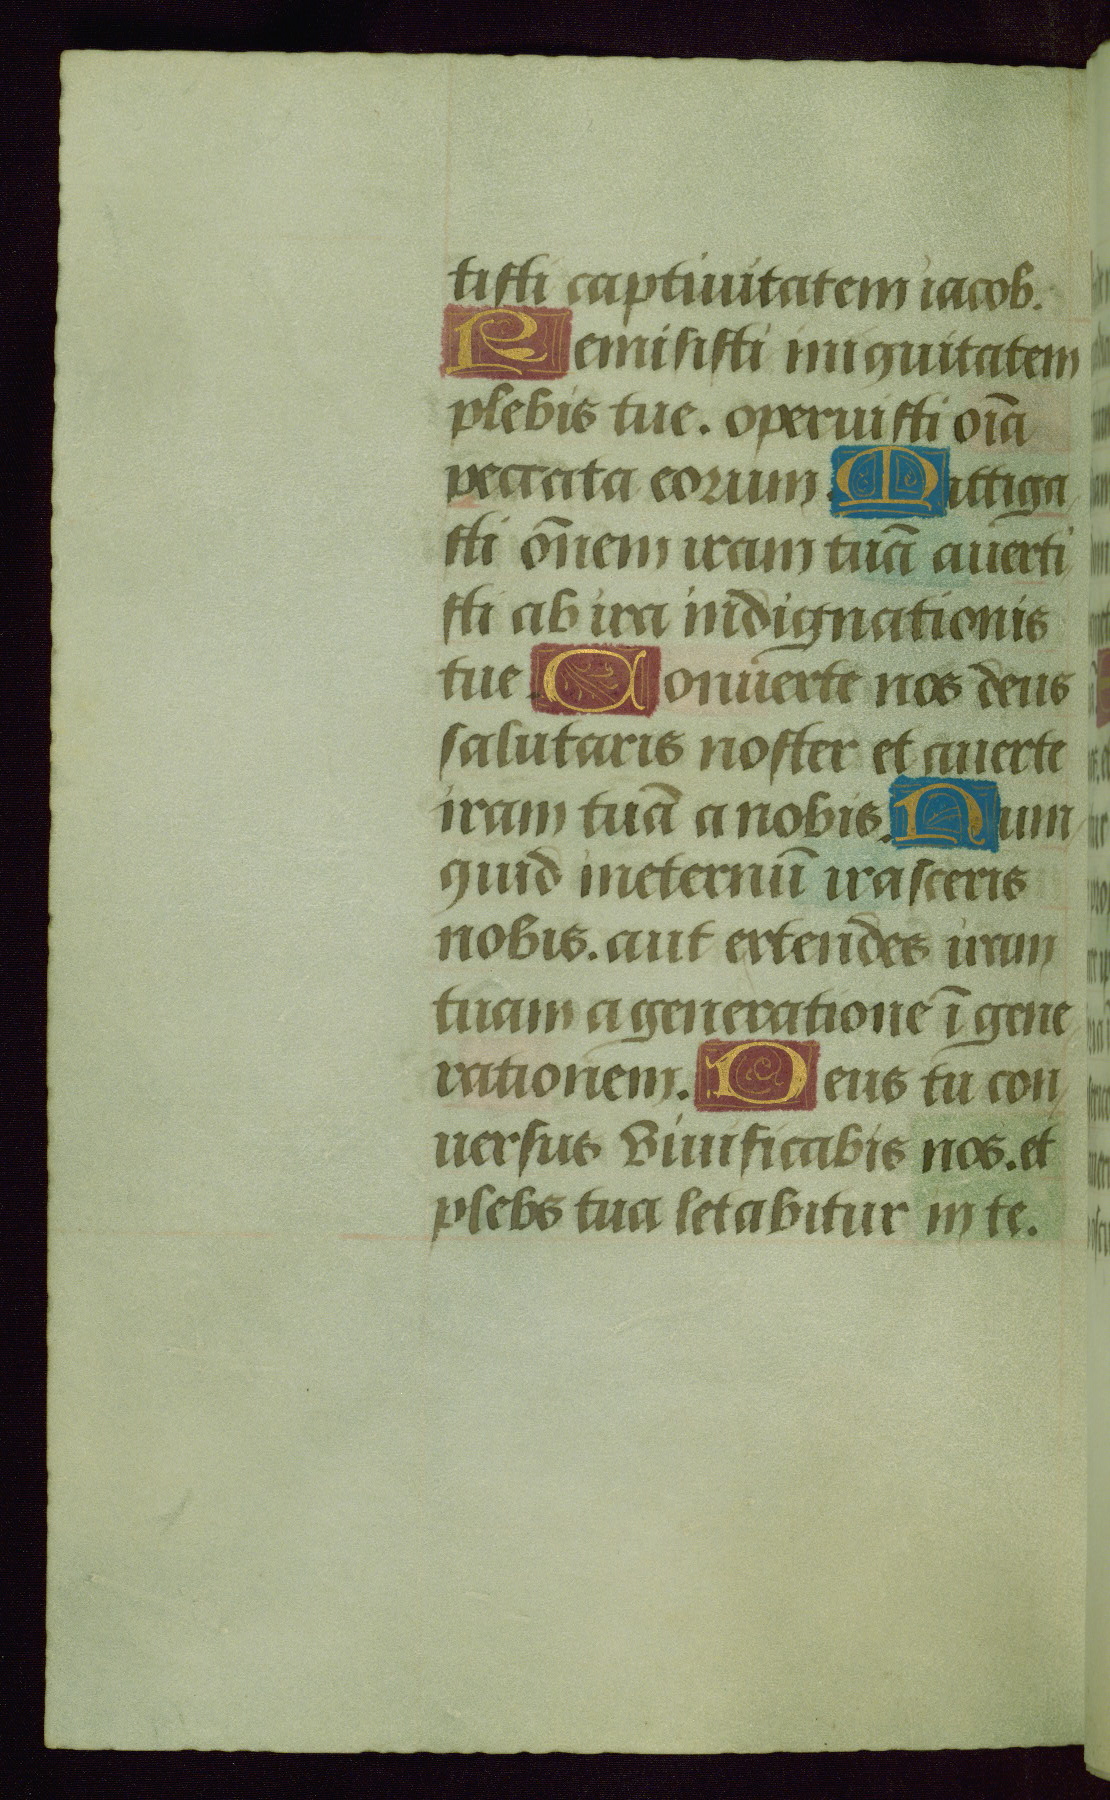 tisti captiuitatem iacob.
Remisisti iniquitatem
plebis tue. operuisti oīa
peccata eorum. Mittiga
sti ōnem iram tuā auerti
sti ab ira indignationis
tue. Conuerte nos deus
salutaris noster et auerte
iram tuā a nobis. Num
quid ineternū irasceris
nobis. aut extendes iram
tuam a generatione ī gene
rationem. Deus tu con
uersus viuificabis nos. et
plebs tua letabitur in te.